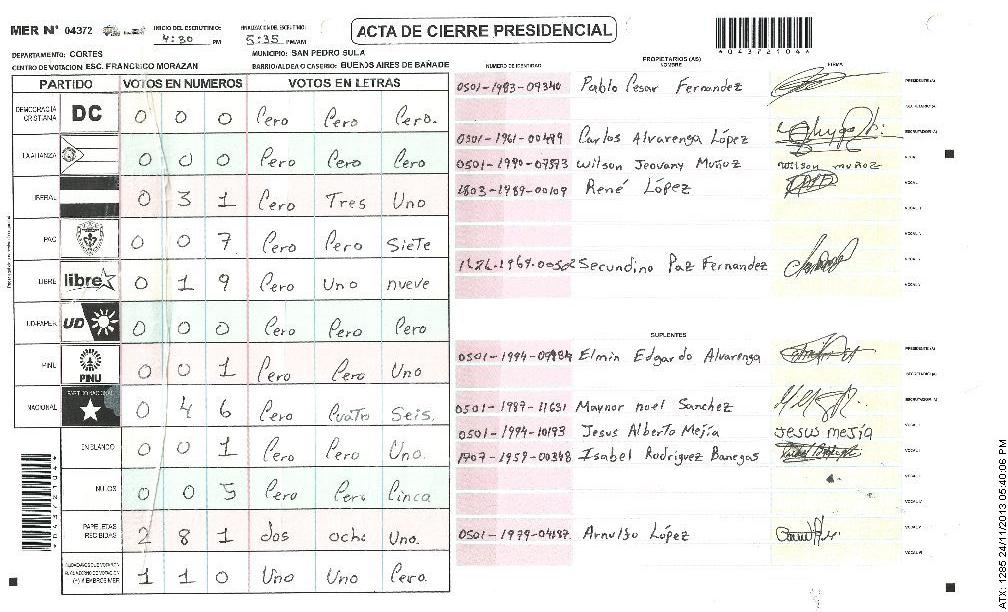 MER N° 04372
INICIO DEL ESCRUTINIO: 4:30 PM
FINALIZACION DEL ESCRUTINIO: 5:35 PM/AM
ACTA DE CIERRE PRESIDENCIAL
*04372104*
DEPARTAMENTO: CORTES
MUNICIPIO: SAN PEDRO SULA
CENTRO DE VOTACION ESC. FRANCISCO MORAZAN
BARRIO/ALDEA O CASERIO: BUENOS AIRES DE BAÑADE
PARTIDO VOTOS EN NUMEROS VOTOS EN LETRAS
DEMOCRACIA CRISTIANA DC 0 0 0 Cero Cero Cero.
LA ALIANZA 0 0 0 Cero Cero Cero
LIBERAL 0 3 1 Cero Tres Uno
PAC 0 0 7 Cero Cero Siete
LIBRE libre 0 1 9 Cero Uno nueve
UD-FAPER UD 0 0 0 Cero Cero Cero
PINU PINU 0 0 1 Cero Cero Uno
NACIONAL PARTIDO NACIONAL 0 4 6 Cero Cuatro Seis.
EN BLANCO 0 0 1 Cero Cero Uno.
NULOS 0 0 5 Cero Cero Cinco
PAPELETAS RECIBIDAS 2 8 1 dos ocho Uno.
(+) MIEMBROS MER 1 1 0 Uno Uno Cero.
PROPIETARIOS (AS)
NUMERO DE IDENTIDAD NOMBRE FIRMA
0501-1983-09340 Pablo Cesar Fernandez PRESIDENTE(A)
SECRETARIO(A)
0501-1961-00499 Carlos Alvarenga López ESCRUTADOR(A)
0501-1990-07573 Wilson Jeovany Muñoz wilson muñoz
1803-1989-00109 René López VOCAL I
VOCAL II
Secundino Paz Fernandez
SUPLENTES
Elmin Edgardo Alvarenga PRESIDENTE(A)
SECRETARIO(A)
0501-1987-11631 Maynor noel Sanchez ESCRUTADOR(A)
0501-1994-10193 Jesus Alberto Mejía Jesus mejía
1707-1959-00348 Isabel Rodriguez Banegas
0501-1979-04187 Arnulfo López
*04372104*
ATX: 1285 24/11/2013 05:40:06 PM